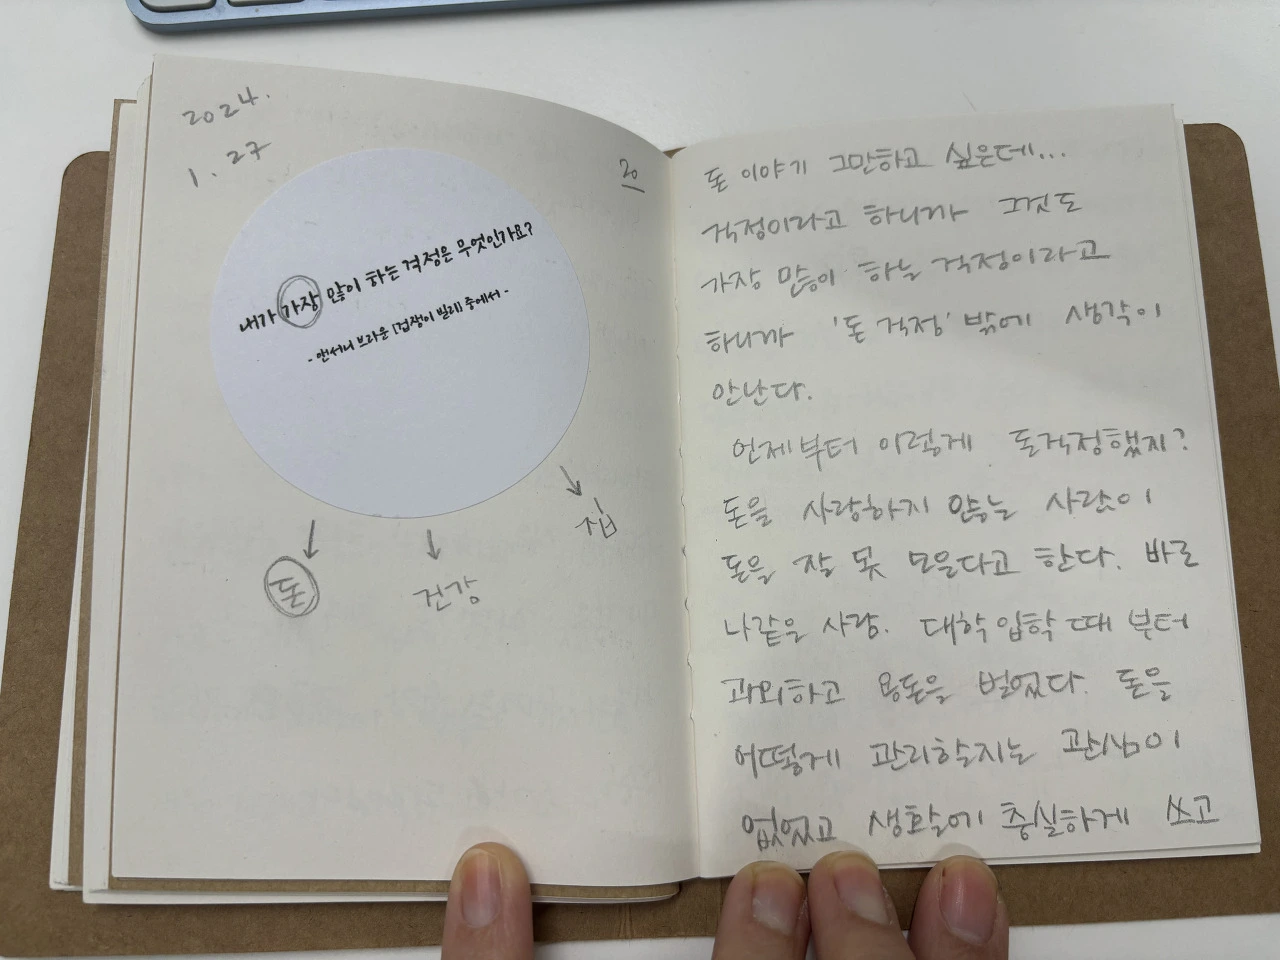 2024.
1.27
20
내가 가장 많이 하는 걱정은 무엇인가요?
- 앤서니 브라운 「겁쟁이 빌리」 중에서 -
돈
건강
집
돈 이야기 그만하고 싶은데...
걱정이라고 하니까 그것도
가장 많이 하는 걱정이라고
하니까 '돈 걱정' 밖에 생각이
안난다.
언제부터 이렇게 돈걱정했지?
돈을 사랑하지 않는 사람이
돈을 잘 못 모은다고 한다. 바로
나같은 사람. 대학입학 때 부터
과외하고 용돈을 벌었다. 돈을
어떻게 관리할지는 관심이
없었고 생활에 충실하게 쓰고